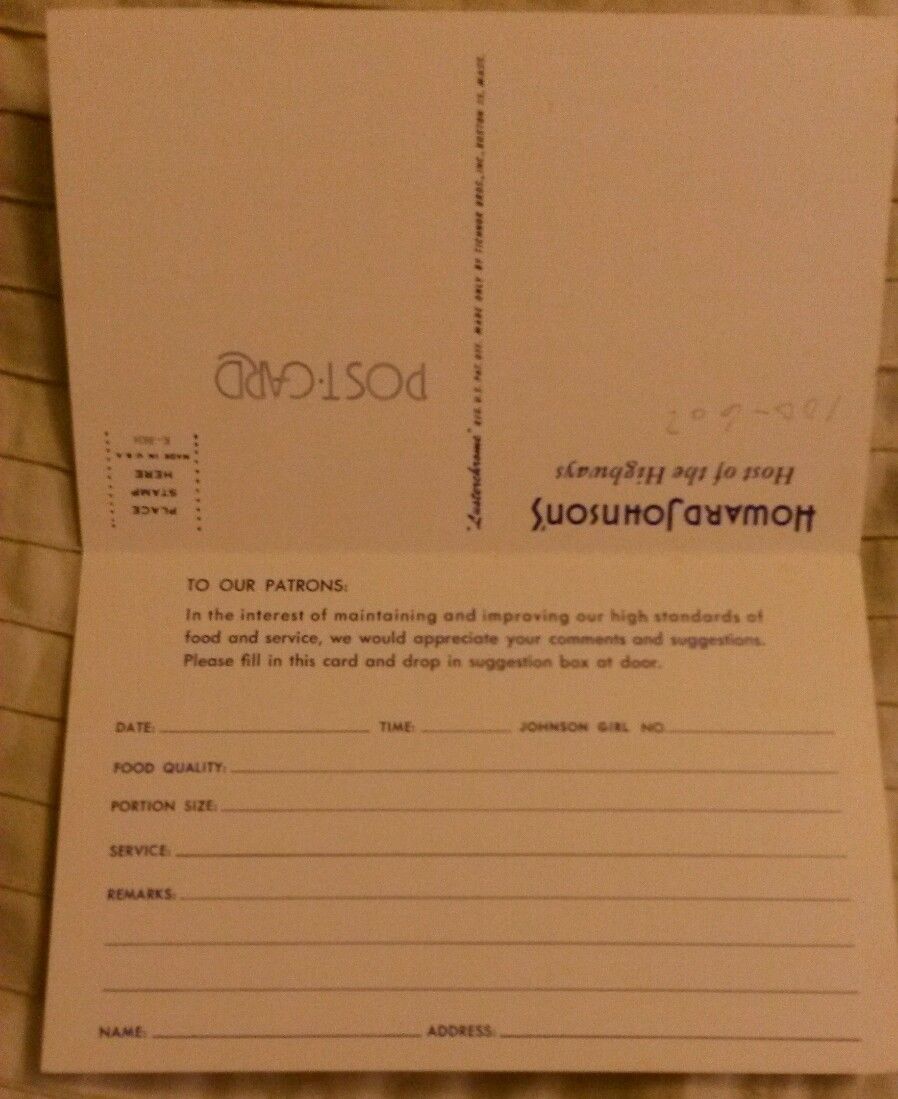 HOWARD JOHNSON'S
Host of the Highways
100-602
"Lusterchrome" REG. U.S. PAT. OFF. MADE ONLY BY TICHNOR BROS., INC., BOSTON 15, MASS.
POST-CARD
PLACE
STAMP
HERE
MADE IN U.S.A.
TO OUR PATRONS:
In the interest of maintaining and improving our high standards of
food and service, we would appreciate your comments and suggestions.
Please fill in this card and drop in suggestion box at door.
DATE: TIME: JOHNSON GIRL NO
FOOD QUALITY:
PORTION SIZE:
SERVICE:
REMARKS:
NAME: ADDRESS: